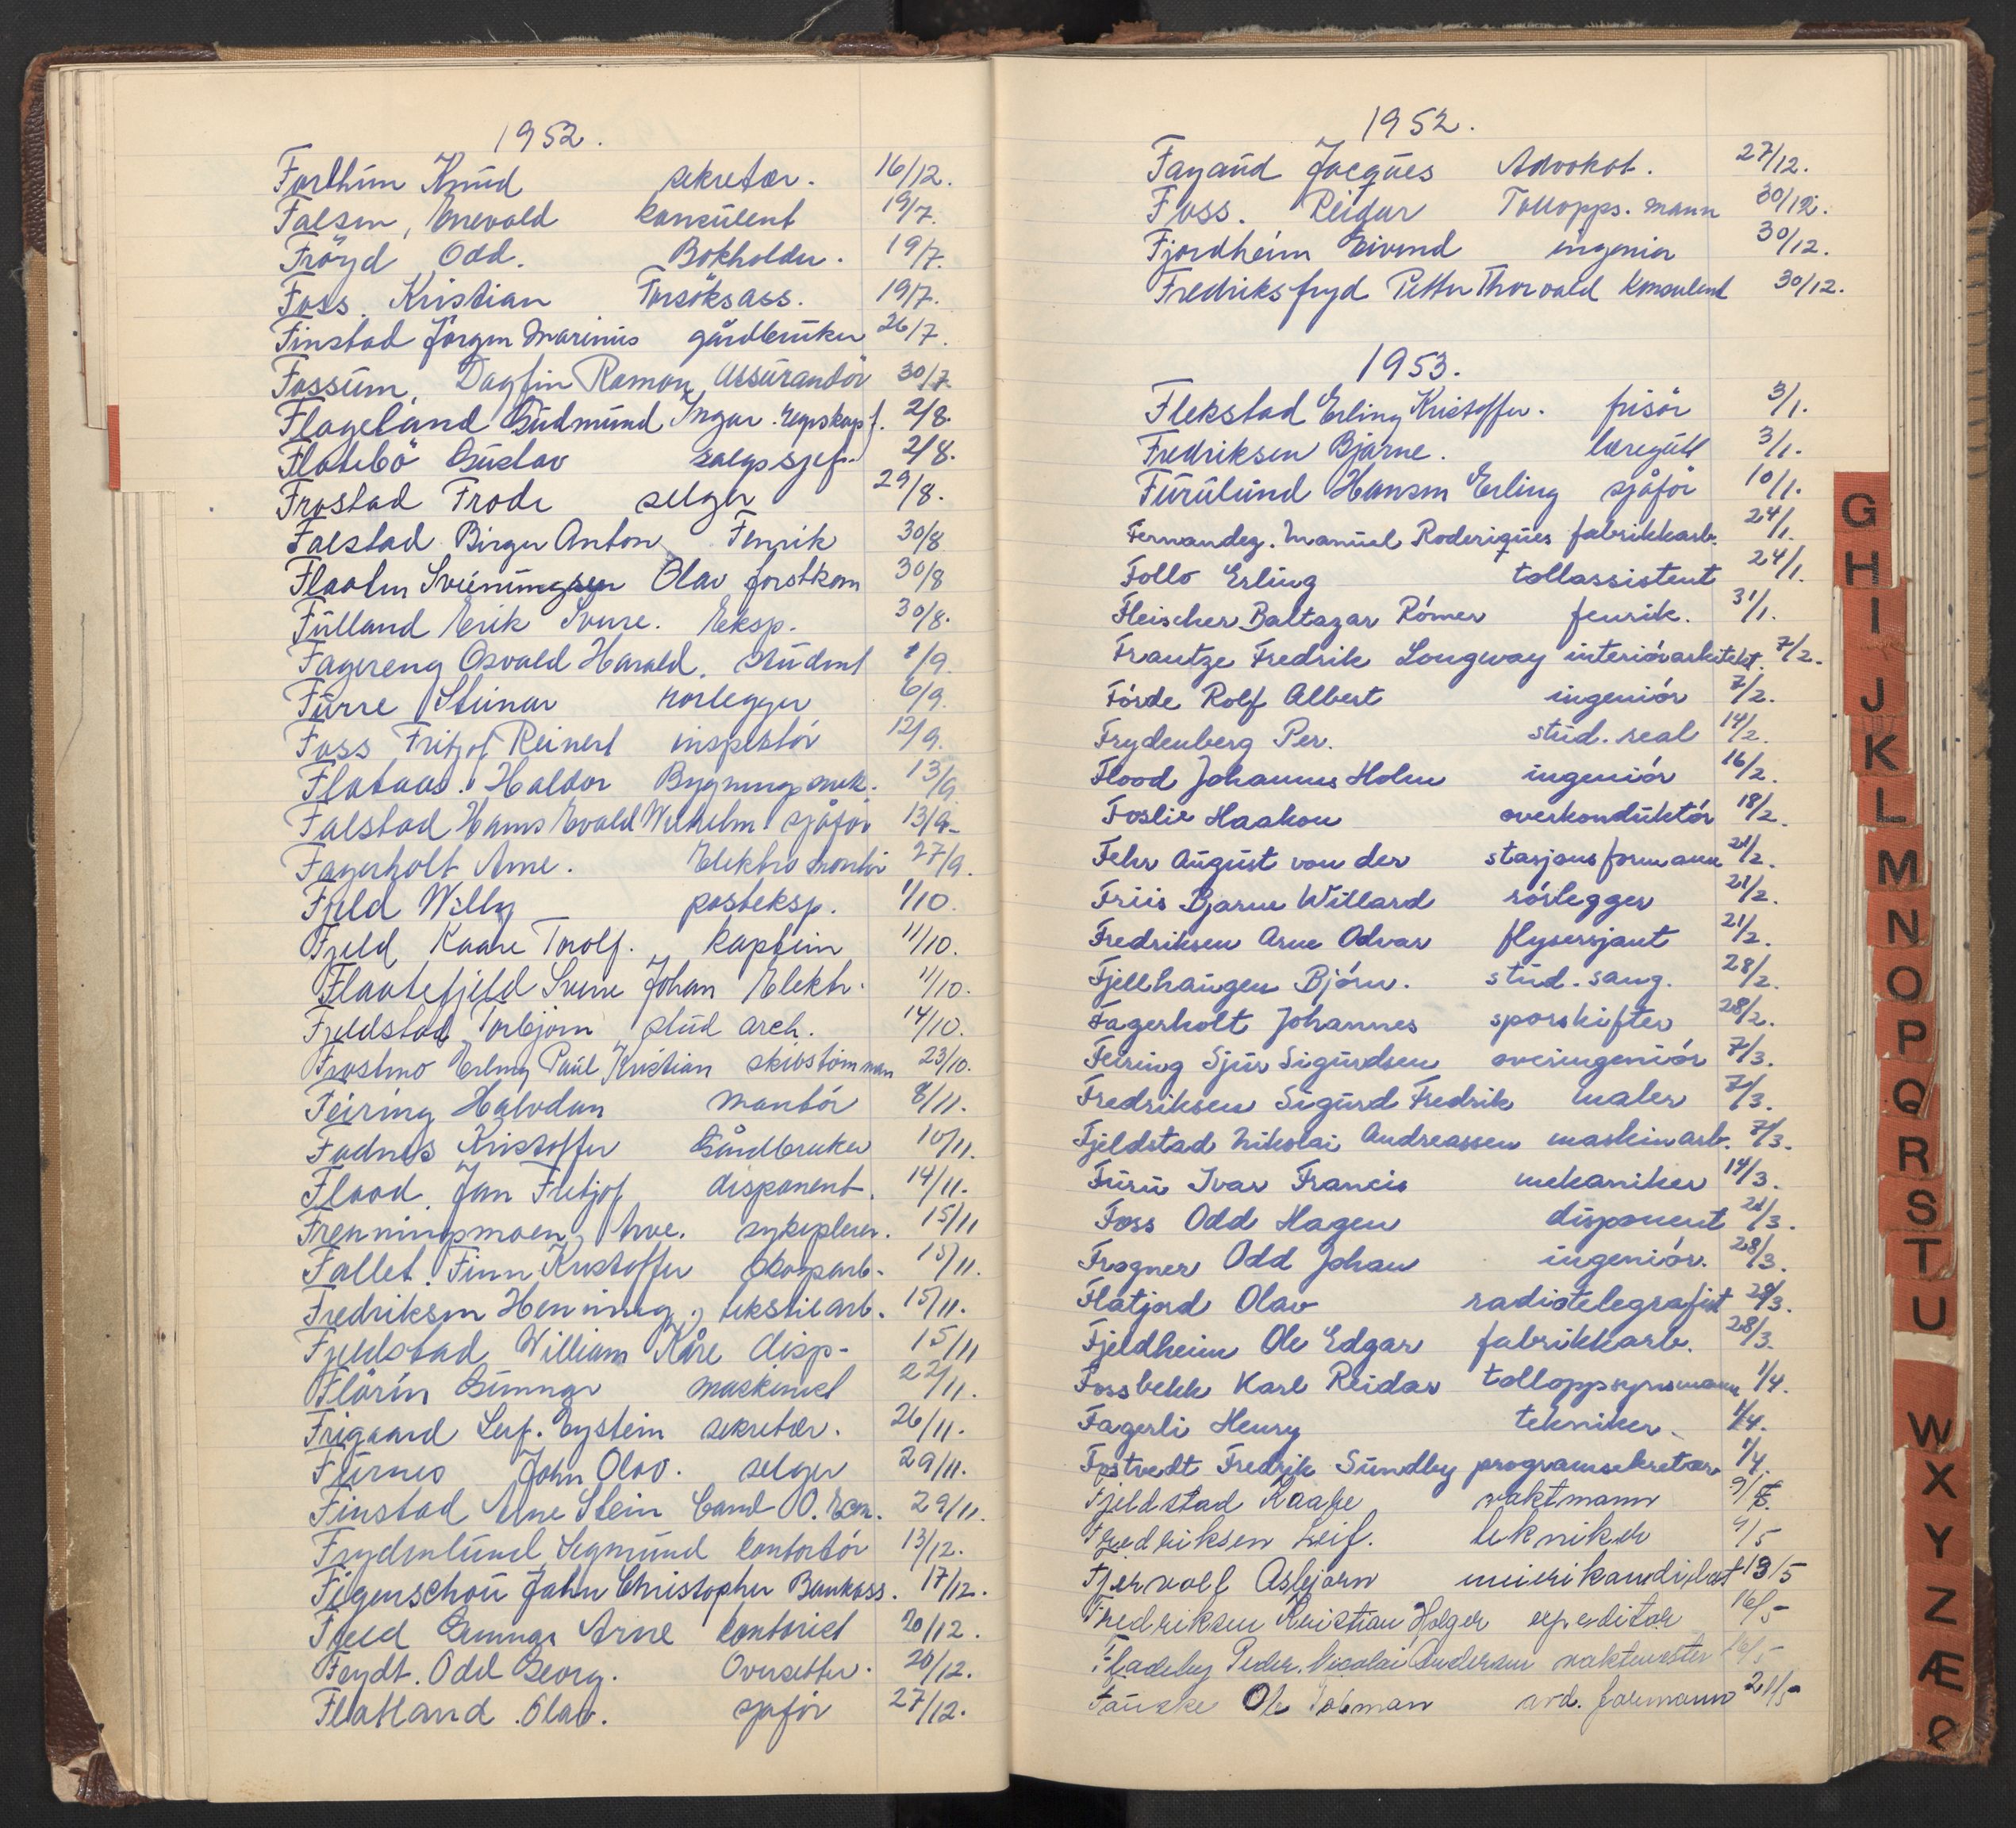 1952.
Forthun Knud sekretær. 16/12.
Falsen, Enevold konsulent 19/7.
Fröyd Odd. Bokholder. 19/7.
Foss. Kristian Forsöksass. 19/7.
Finstad Jörgen Marinus gårdbruker 26/7.
Fossum, Dagfin Roman, Assurandör 30/7.
Flageland Gudmund Ingar. 2/8.
Flatebö Gustav salgssjef. 2/8.
Frostad Frode selger 29/8.
Falstad Birger Anton Fenrik 30/8
Olav forstkan 30/8
Fülland Erik Sverre. Eksp. 30/8.
Fagereng Osvald Harald. student /9.
Furre Steinar rörlegger 6/9.
Foss Fritjof Reinert inspektör 12/9.
Flataas. Haldor Bygning snek. 13/9
Falstad Hans Evald Wilhelm sjåför 13/9.
Fagerholt Arne. Elektro montör 27/9.
Fjeld Willy posteksp. 1/10.
Fjeld Kaare Torolf. kaptein 11/10.
Flaatefjeld Sverre Johan Elektr. 11/10.
Fjeldstad Torbjörn stud arch. 14/10.
Frostmo Erling Paul Kristian skibstömmerman 23/10.
Feiring Halvdan montör 8/11.
Fadnes Kristoffer Gårdbruker 10/11.
Flood, Jan Fritjof disponent. 14/11.
Frenningsmoen, Arve. sykepleier. 15/11
Fallet. Finn Kristoffer skogsarb. 15/11.
Fredriksen Henning, tekstilarb. 15/11.
Fjeldstad William Kåre disp. 15/11
Flörin Gunnar maskinist 22/11.
Frigaard Leif. Eystein sekretær. 26/11.
Furnes John Olav. selger 29/11.
Finstad Arne Stein Cand O. Ecn. 29/11.
Frydenlund, Sigmund kontorför 13/12.
Figenschou John Christopher Bankass. 17/12.
Fjeld Gunnar Arne kontorist 20/12.
Feydt. Odd Georg. Oversetter. 20/12.
Flatland. Olav. sjåför 27/12.
1952.
Fayaud Jacques Advokat. 27/12.
Foss. Reidar Tollopps. mann 30/12.
Fjordheim Eivind ingeniör 30/12.
Fredriksfryd Petter Thorvald konsulent 30/12.
1953.
Flekstad Erling Kristoffer. frisör 3/1.
Fredriksen Bjarne. læregutt 3/1.
Furulund Hansen Erling sjåför 10/1.
Fernandez. Manuel Roderiques fabrikkarb. 24/1.
Follo Erling tollassistent 24/1.
Fleischer Baltazar Römer fenrik. 31/1.
Frantze Fredrik Longway interiörarkitekt. 7/2.
Förde Rolf Albert ingeniör 7/2.
Frydenberg Per. stud. real 14/2.
Flood Johannes Holm ingeniör 16/2.
Foslie Haakon overkonduktör 18/2.
Fehr August von der stasjonsformann 21/2.
Friis Bjarne Willard rörlegger 21/2.
Fredriksen Arne Odvar flysersjant 21/2.
Fjellhaugen Björn. stud. sang. 28/2.
Fagerholt Johannes sporskifter 28/2.
Feiring Sjur Sigurdsen overingeniör 7/3.
Fredriksen Sigurd Fredrik maler 7/3.
Fjeldstad Nikolai Andreassen maskinarb. 7/3.
Furu Ivar Francis mekaniker 14/3.
Foss Odd Hagen disponent 21/3.
Frogner Odd Johan ingeniör. 28/3.
Flatjord Olav radiotelegrafist 28/3.
Fjeldheim Ole Edgar fabrikkarb. 28/3.
Fossbekk Karl Reidar tolloppsynsmann 1/4.
Fagerli Henry tekniker. 1/4.
Fostvedt Fredrik Sundby programsekretær 1/4.
Fjeldstad Kaare vaktmann 9/5.
Fredriksen Leif. tekniker 9/5
Fjervoll Asbjørn meierikandidat 13/5
Fredriksen Kristian Holger expeditør 16/5
Fladeby Peder. Nicolai Andersen vaktmester 16/5
Fauske Ole Tobman avd. formann 21/5
G
H
I
J
K
L
M
N
O
P
Q
R
S
T
U
W
X
Y
Z
Æ
Ø